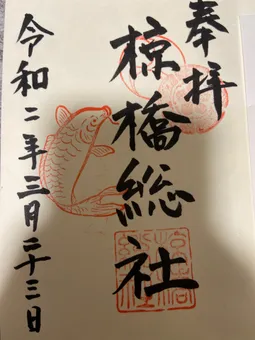 奉拝
椋橋総社
令和二年三月二十三日